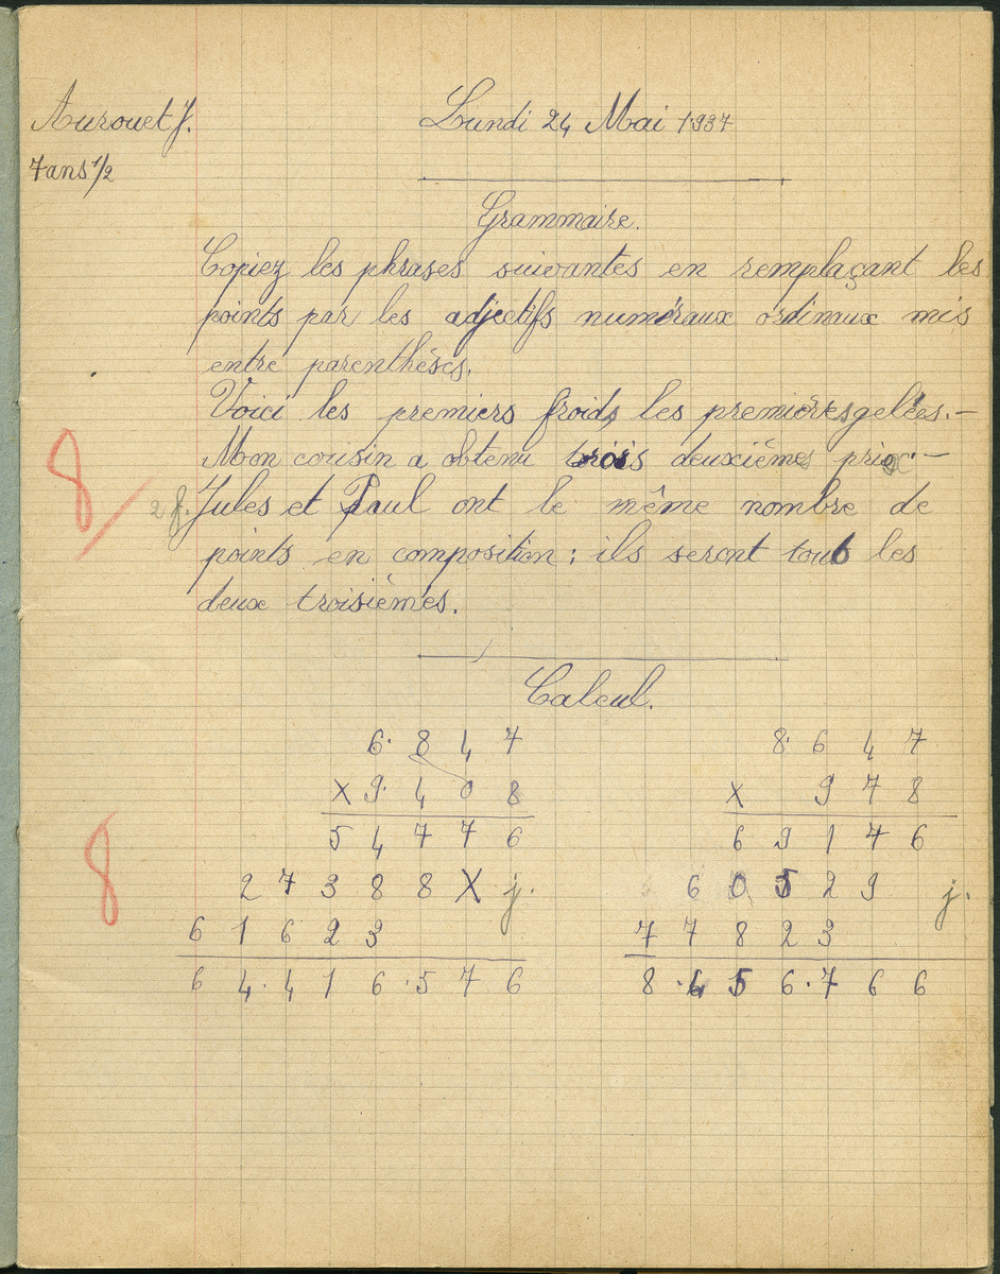 Aurouet J. Lundi 24 Mai 1937
7 ans 1/2
Grammaire.
Copiez les phrases suivantes en remplaçant les
points par les adjectifs numéraux ordinaux mis
entre parenthèses.
Voici les premiers froids, les premières gelées. —
Mon cousin a obtenu trois deuxièmes prix. —
8
2 f. Jules et Paul ont le même nombre de
points en composition : ils seront tous les
deux troisièmes.
Calcul.
6. 8 4 7 8. 6 4 7
X 9. 4 0 8 X 9 7 8
5 4 7 7 6 6 9 1 7 6
8 2 7 3 8 8 X j. 6 0 5 2 9 j.
6 1 6 2 3 7 7 8 2 3
6 4. 4 1 6 .5 7 6 8 .4 5 6 .7 6 6